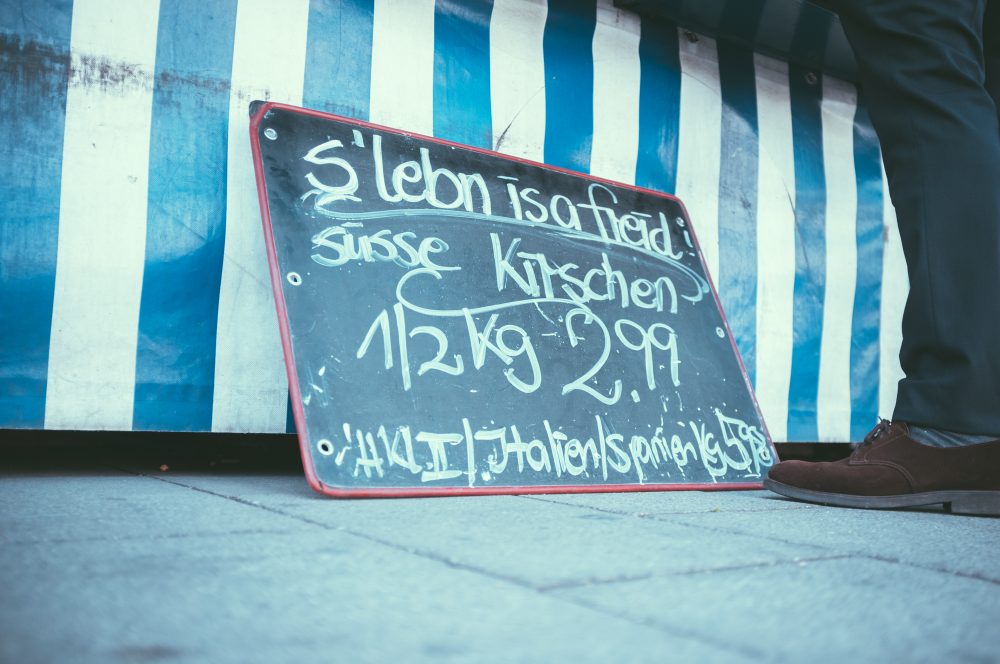 s'lebn is a freid!
süsse Kirschen
1/2 Kg 2.99
HKl.II/.Italien/spanien/Kg 5.98